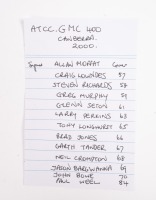 ATCC. GMC 400
CANBERRA.
2000.
Signed ALLAN MOFFAT Cover
CRAIG LOWNDES 57
STEVEN RICHARDS 58
GREG MURPHY 59
GLENN SETON 61
LARRY PERKINS 63
TONY LONGHURST 65
BRAD JONES 66
GARTH TANDER 67
NEIL CROMPTON 68
JASON BARGWANNA 69
JOHN BOWE 70
PAUL WEEL 84